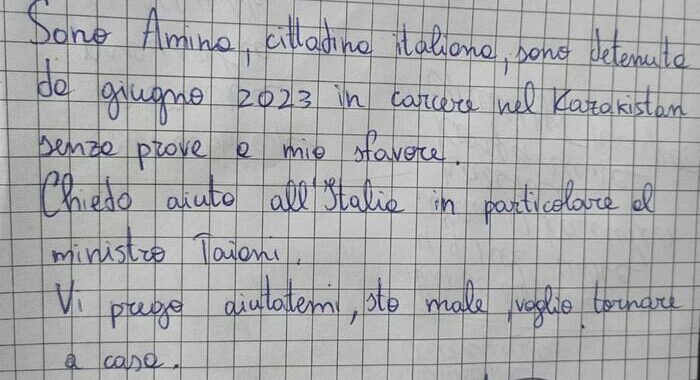 Sono Amina, cittadina italiana, sono detenuta
da giugno 2023 in carcere nel Kazakistan
senza prove a mio sfavore.
Chiedo aiuto all'Italia in particolare al
ministro Taioni.
Vi prego aiutatemi, sto male, voglio tornare
a casa.